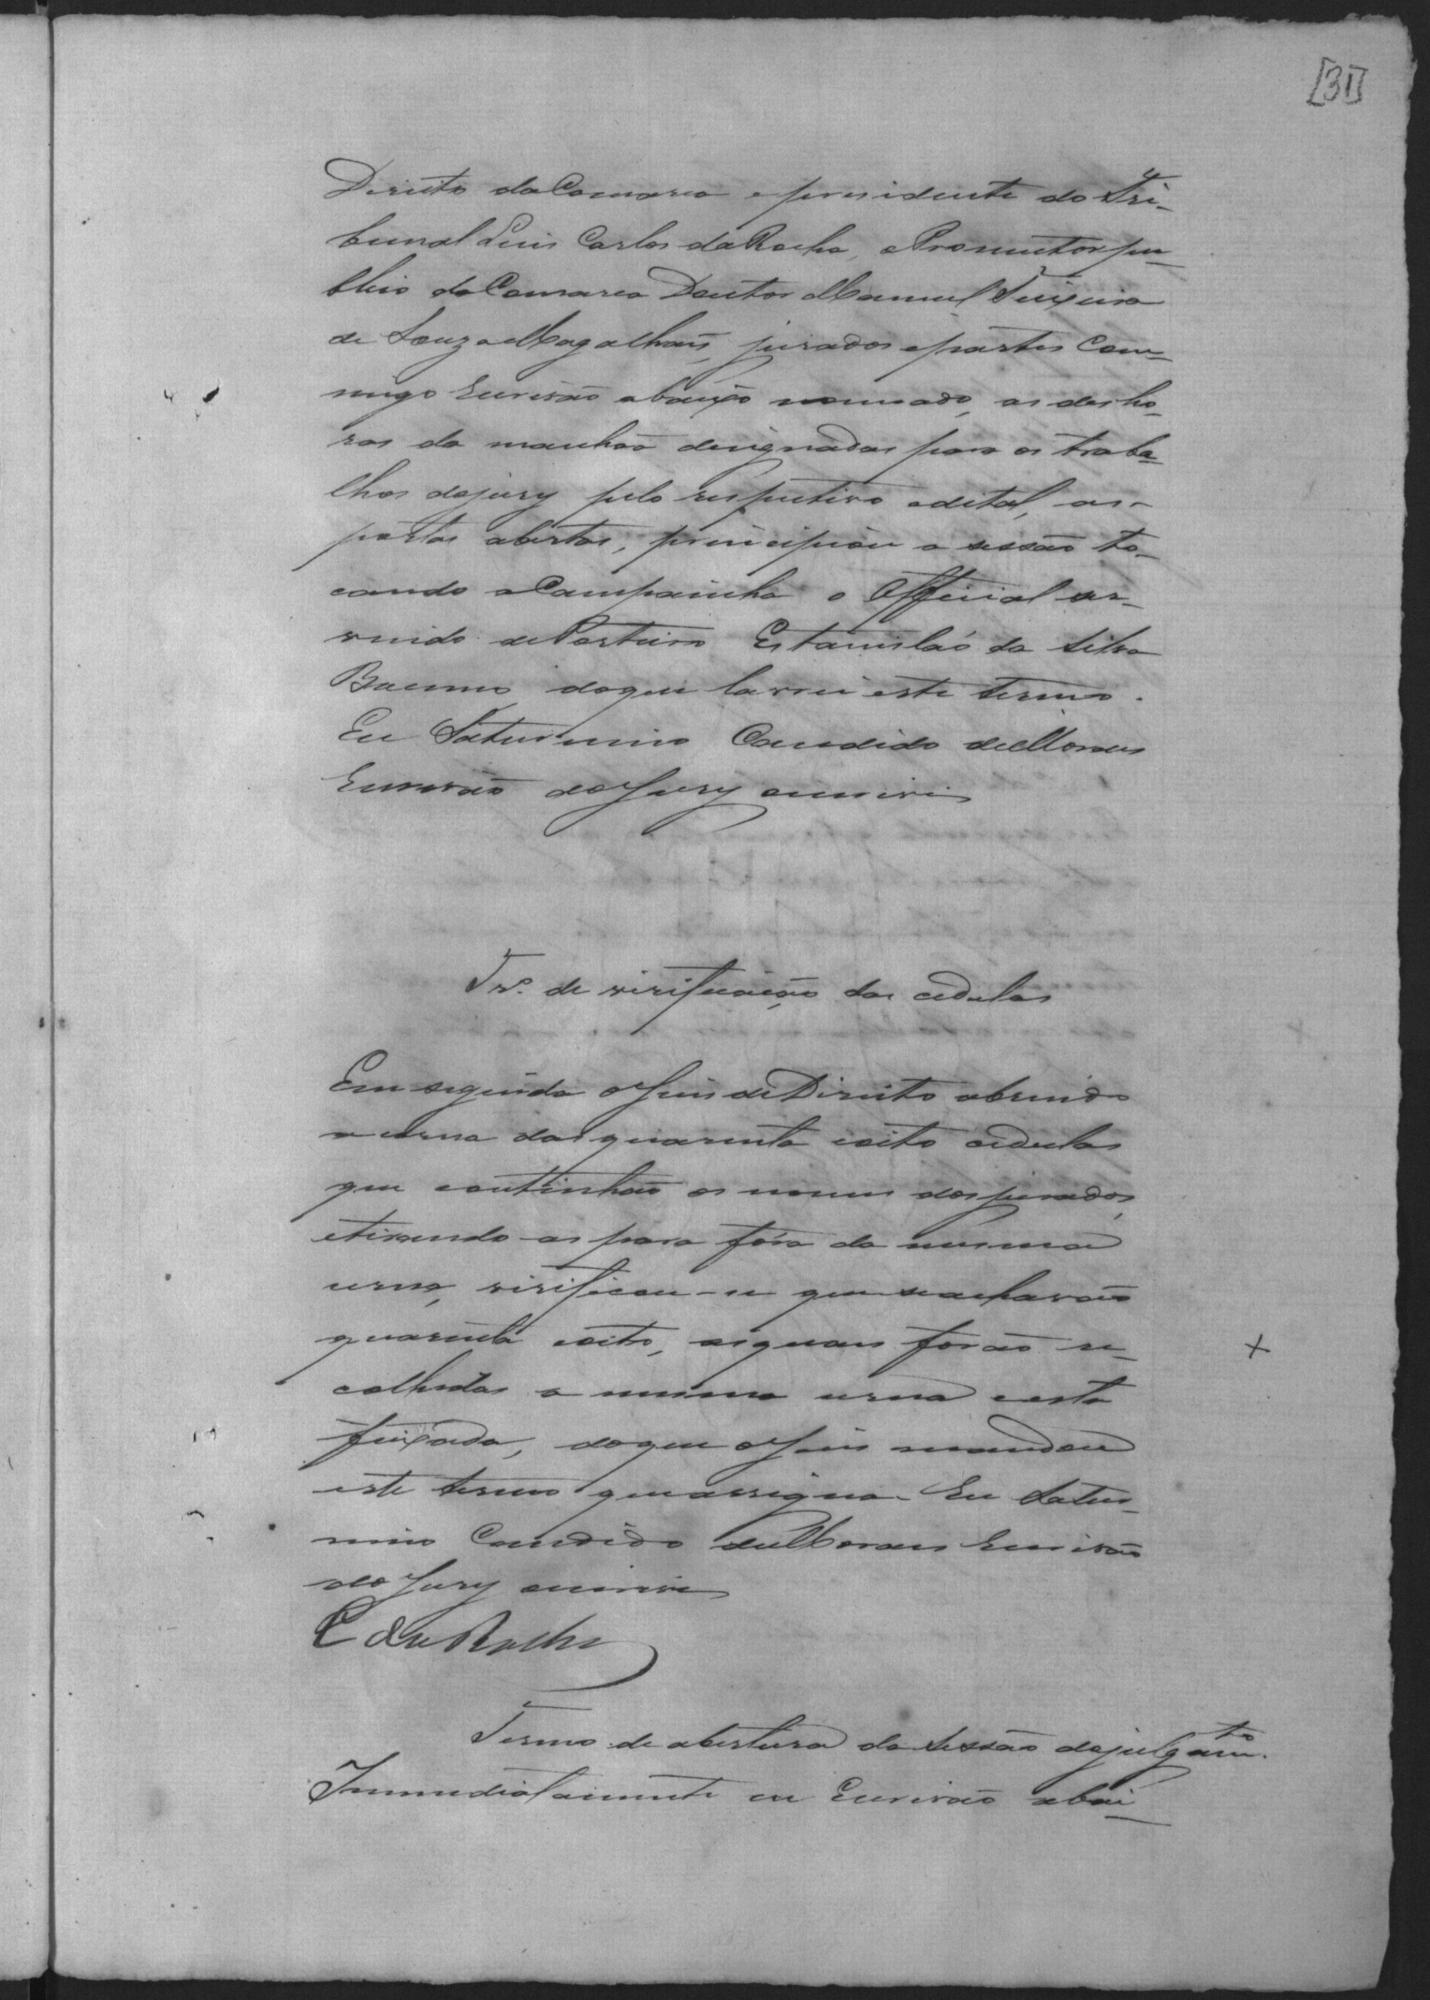 [31]
Direito da Comarca e presidente do Tri-
bunal Luis Carlos da Rocha, o Promutor pu-
blico da Comarca Doutor Manuel Teixeira
de Souza e Magalhães, jurados e partes com-
migo Escrivão abaixo nomeado, as des ho-
ras da manhão designadas para os traba-
lhos do jury pelo respectivo edital, as-
portas abertas, principiou a sessão to-
cando a Campainha o Official ser-
vindo de Porteiro Estanislaó da Silva
do que lavrei este termo.
Eu Saturnino Candido de Moraes
Escrivão do Jury escrivi
Tr.º de virificação das cedulas
Em seguida o Juis de Direito abrindo
a urna das quarenta e oito cedulas
que continhão os nomes dos jurados,
e tirando-as para fóra da mesma
urna, virificou-se que se achavão
quarenta e oito, as quaes forão re-
colhidas a mesma urna e esta
feixada, do que o Juis mandou
este termo que assigna. Eu Satur-
nino Candido de Moraes Escrivão
do Jury escrivi
C da Rocha
Termo de abertura da Sessão do julgam.to
Immediatamente eu Escrivão abai-